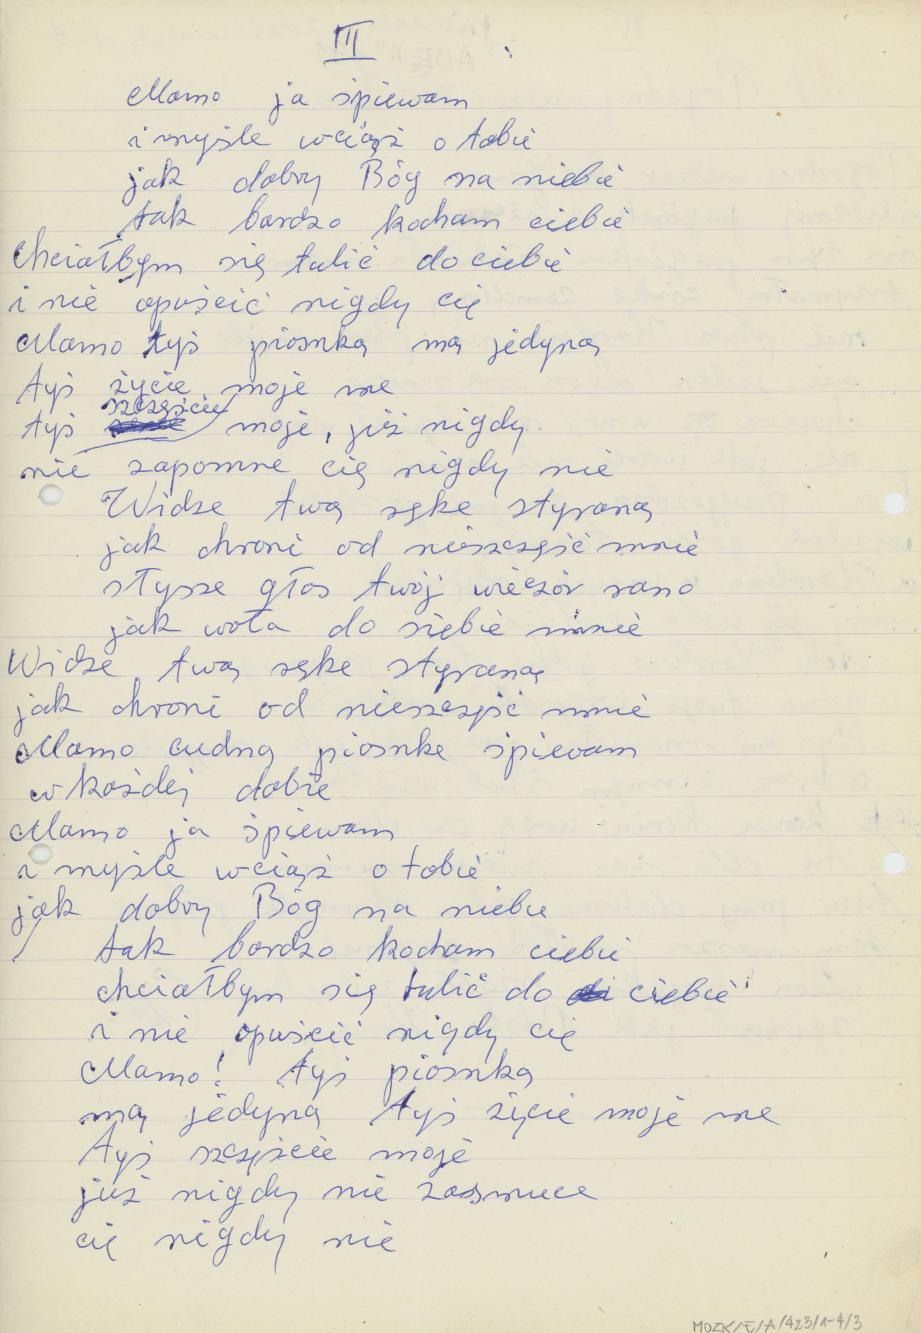 III
Mamo ja śpiewam
i myśle wciąż o tobie
jak dobry Bóg na niebie
tak bardzo kocham ciebie
chciałbym się tulić do ciebie
i nie opuścić nigdy cię
Mamo tyś piosnką mą jedyną
tyś życie moje me
szczęście
tyś moje, już nigdy
nie zapomne cię nigdy nie
Widze twą ręke styraną
jak chroni od nieszczęść mnie
słysze głos twój wieczór rano
jak woła do siebie mnie
Widze twą ręke styraną
jak chroni od nieszczęść mnie
Mamo cudną piosnke śpiewam
w każdej dobie
Mamo ja śpiewam
i myśle wciąż o tobie
jak dobry Bóg na niebie
tak bardzo kocham ciebie
chciałbym się tulić do ciebie
i nie opuścić nigdy cię
Mamo! tyś piosnką
mą jedyną tyś życie moje me
tyś szczęście moje
już nigdy nie zasmuce
cię nigdy nie
MOZK/E/A/423/1-4/3